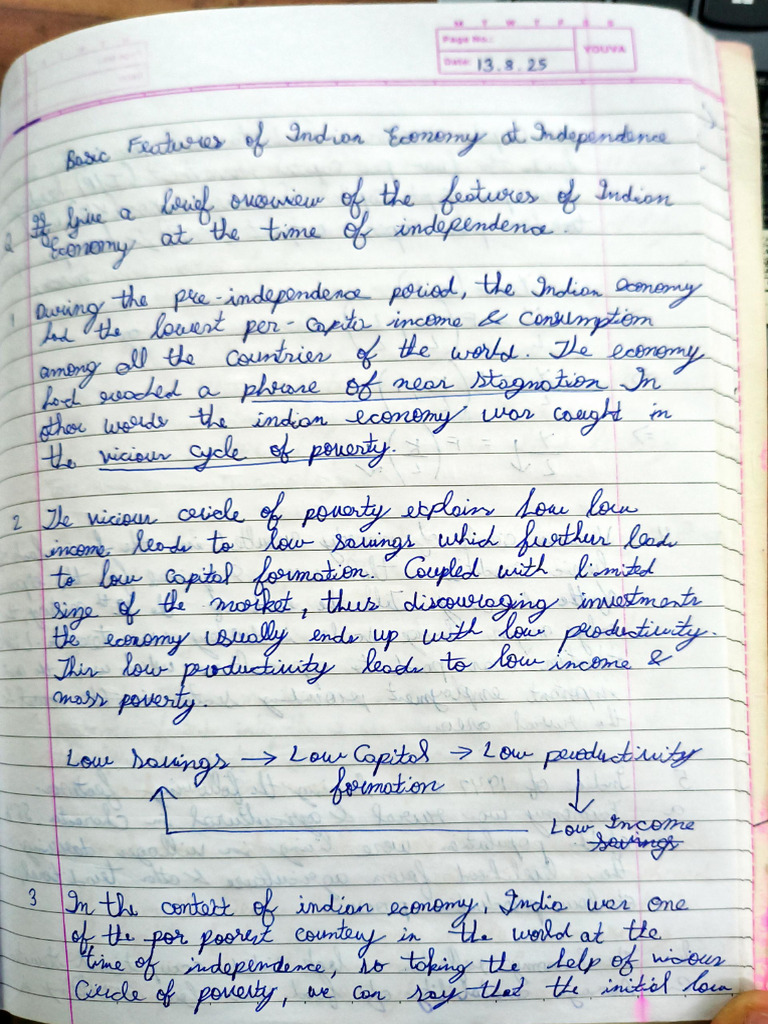 M T W T F S S
Page No.:
Date: 13.8.25
YOUVA
Basic Features of Indian Economy at Independence
Q Give a brief overview of the features of Indian
Economy at the time of independence.
1 During the pre-independence period, the Indian economy
had the lowest per-capita income & consumption
among all the countries of the world. The economy
had reached a phrase of near stagnation In
other words the indian economy was caught in
the vicious cycle of poverty.
2 The vicious circle of poverty explains how low
income leads to low savings which further leads
to low capital formation. Coupled with limited
size of the market, thus discouraging investments
the economy usually ends up with low productivity.
This low productivity leads to low income &
mass poverty.
Low savings → Low Capital → Low productivity
formation
Low Income
savings
3 In the context of indian economy, India was one
of the por poorest country in the world at the
time of independence, so taking the help of vicious
Circle of poverty, we can say that the initial low